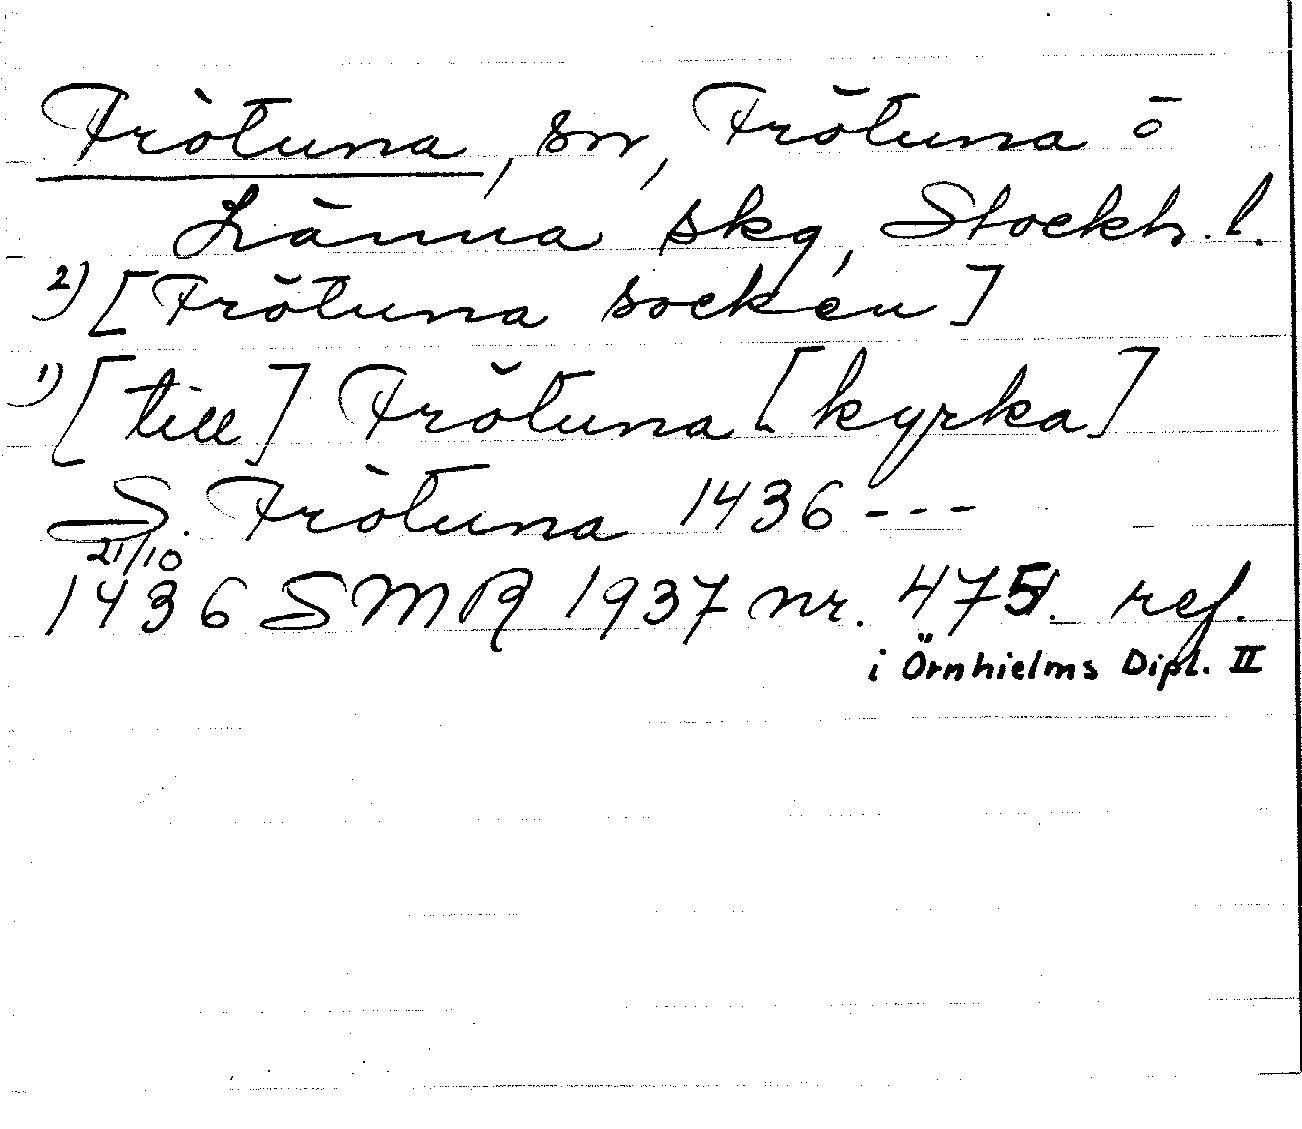 Frötuna, sn, Frötuna o
Länna skg, Stockh. l.
2) [Frötuna socken]
1) [till] Frötuna [kyrka]
S. Frötuna 1436 - - -
21/10
1436 SMR 1937 nr. 475. ref.
i Örnhielms Dipl. II